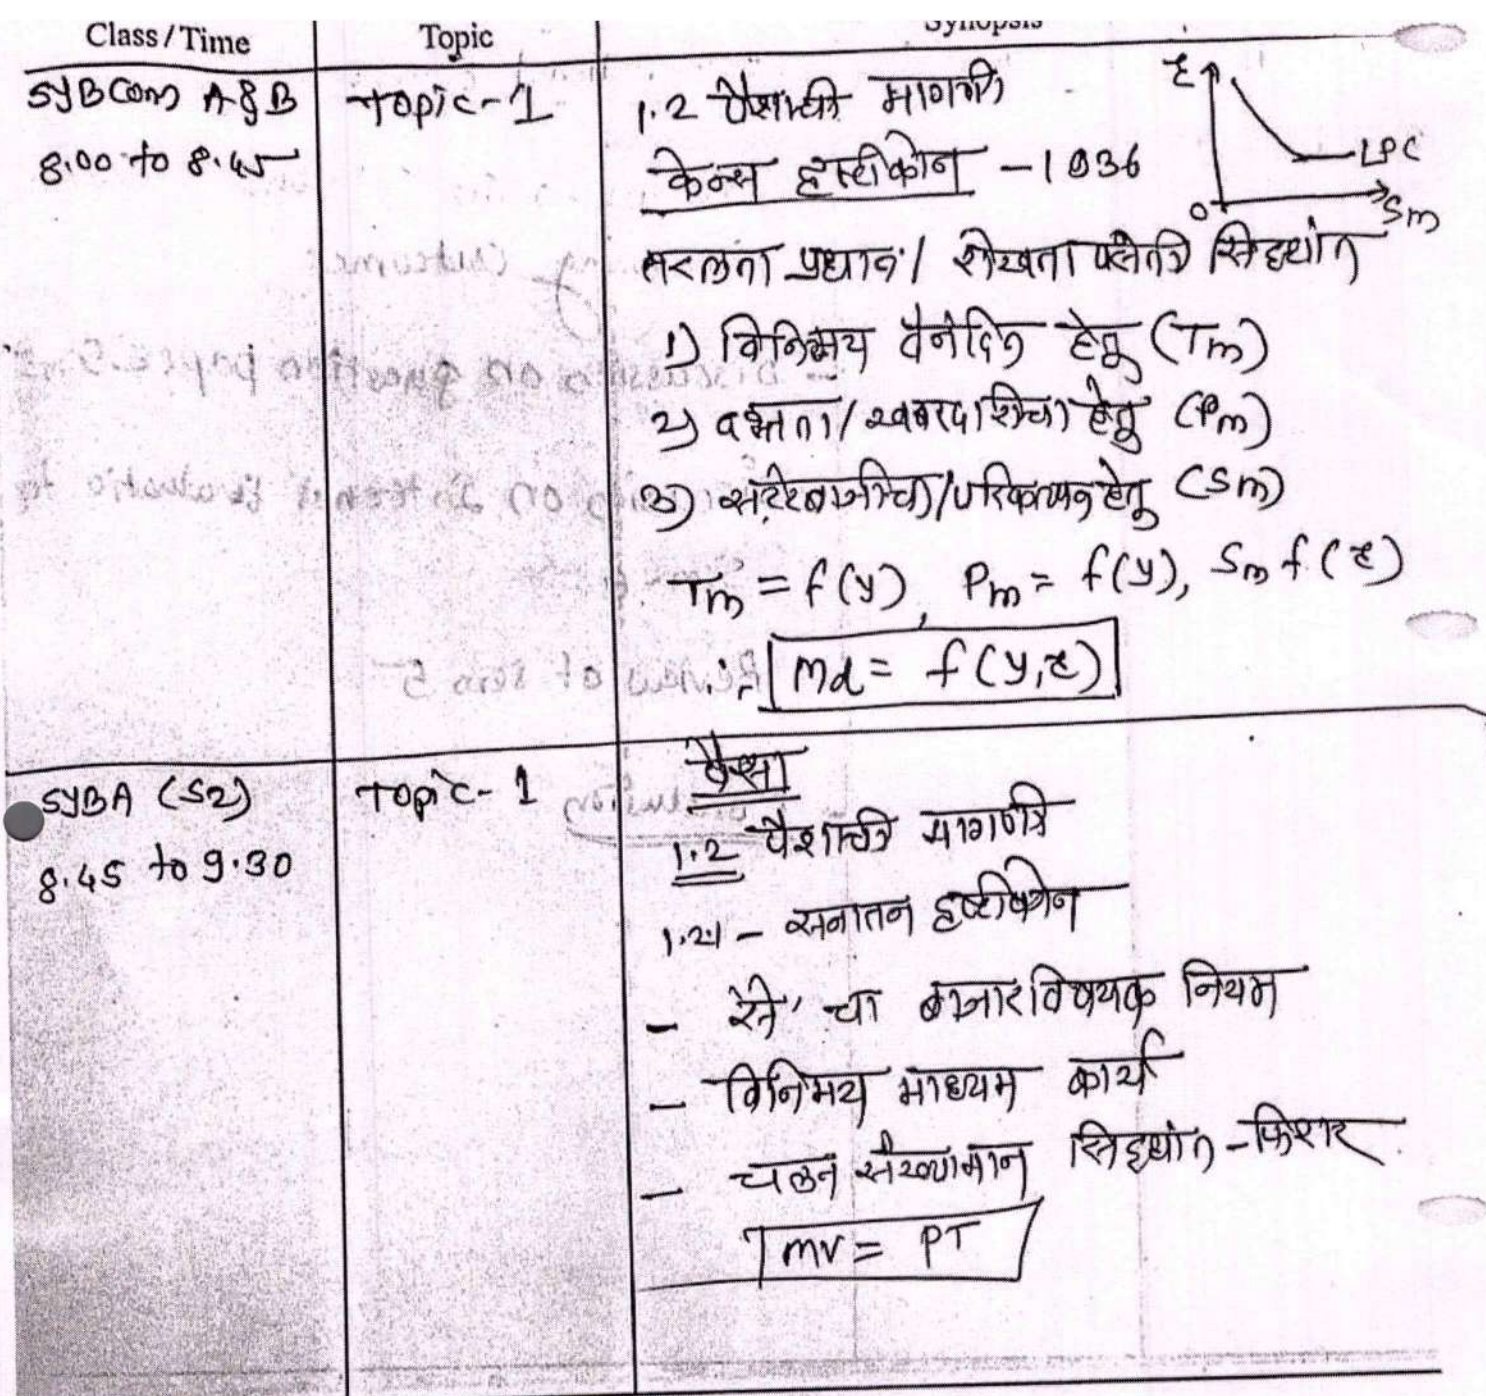 Class / Time Topic Synopsis
SYBCom A & B Topic-1 1.2 पैशाची मागणी
8.00 to 8.45 केन्स दृष्टीकोन - 1936
r LPC O Sm
तरलता प्रधान / रोखता पसंती सिद्धांत
1) विनिमय दैनंदिन हेतू (Tm)
2) दक्षता / खबरदारीचा हेतू (Pm)
3) सट्टेबाजीचा / परिकल्पन हेतू (Sm)
Tm = f(y), Pm = f(y), Sm f(r)
∴ md = f(y,r)
SYBA (S2) Topic-1 पैसा
8.45 to 9.30 1.2 पैशाची मागणी
1.21 - सनातन दृष्टीकोन
- से' चा बाजारविषयक नियम
- विनिमय माध्यम कार्य
- चलन संख्यामान सिद्धांत - फिशर
mv = PT